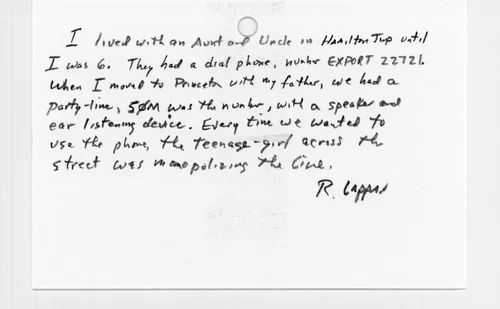 I lived with an Aunt and Uncle in Hamilton Twp until
I was 6. They had a dial phone, number EXPORT 22721.
When I moved to Princeton with my father, we had a
party-line, 50M was the number, with a speaker and
ear listening device. Every time we wanted to
use the phone, the teenage-girl across the
street was monopolizing the line.
R. Lappan